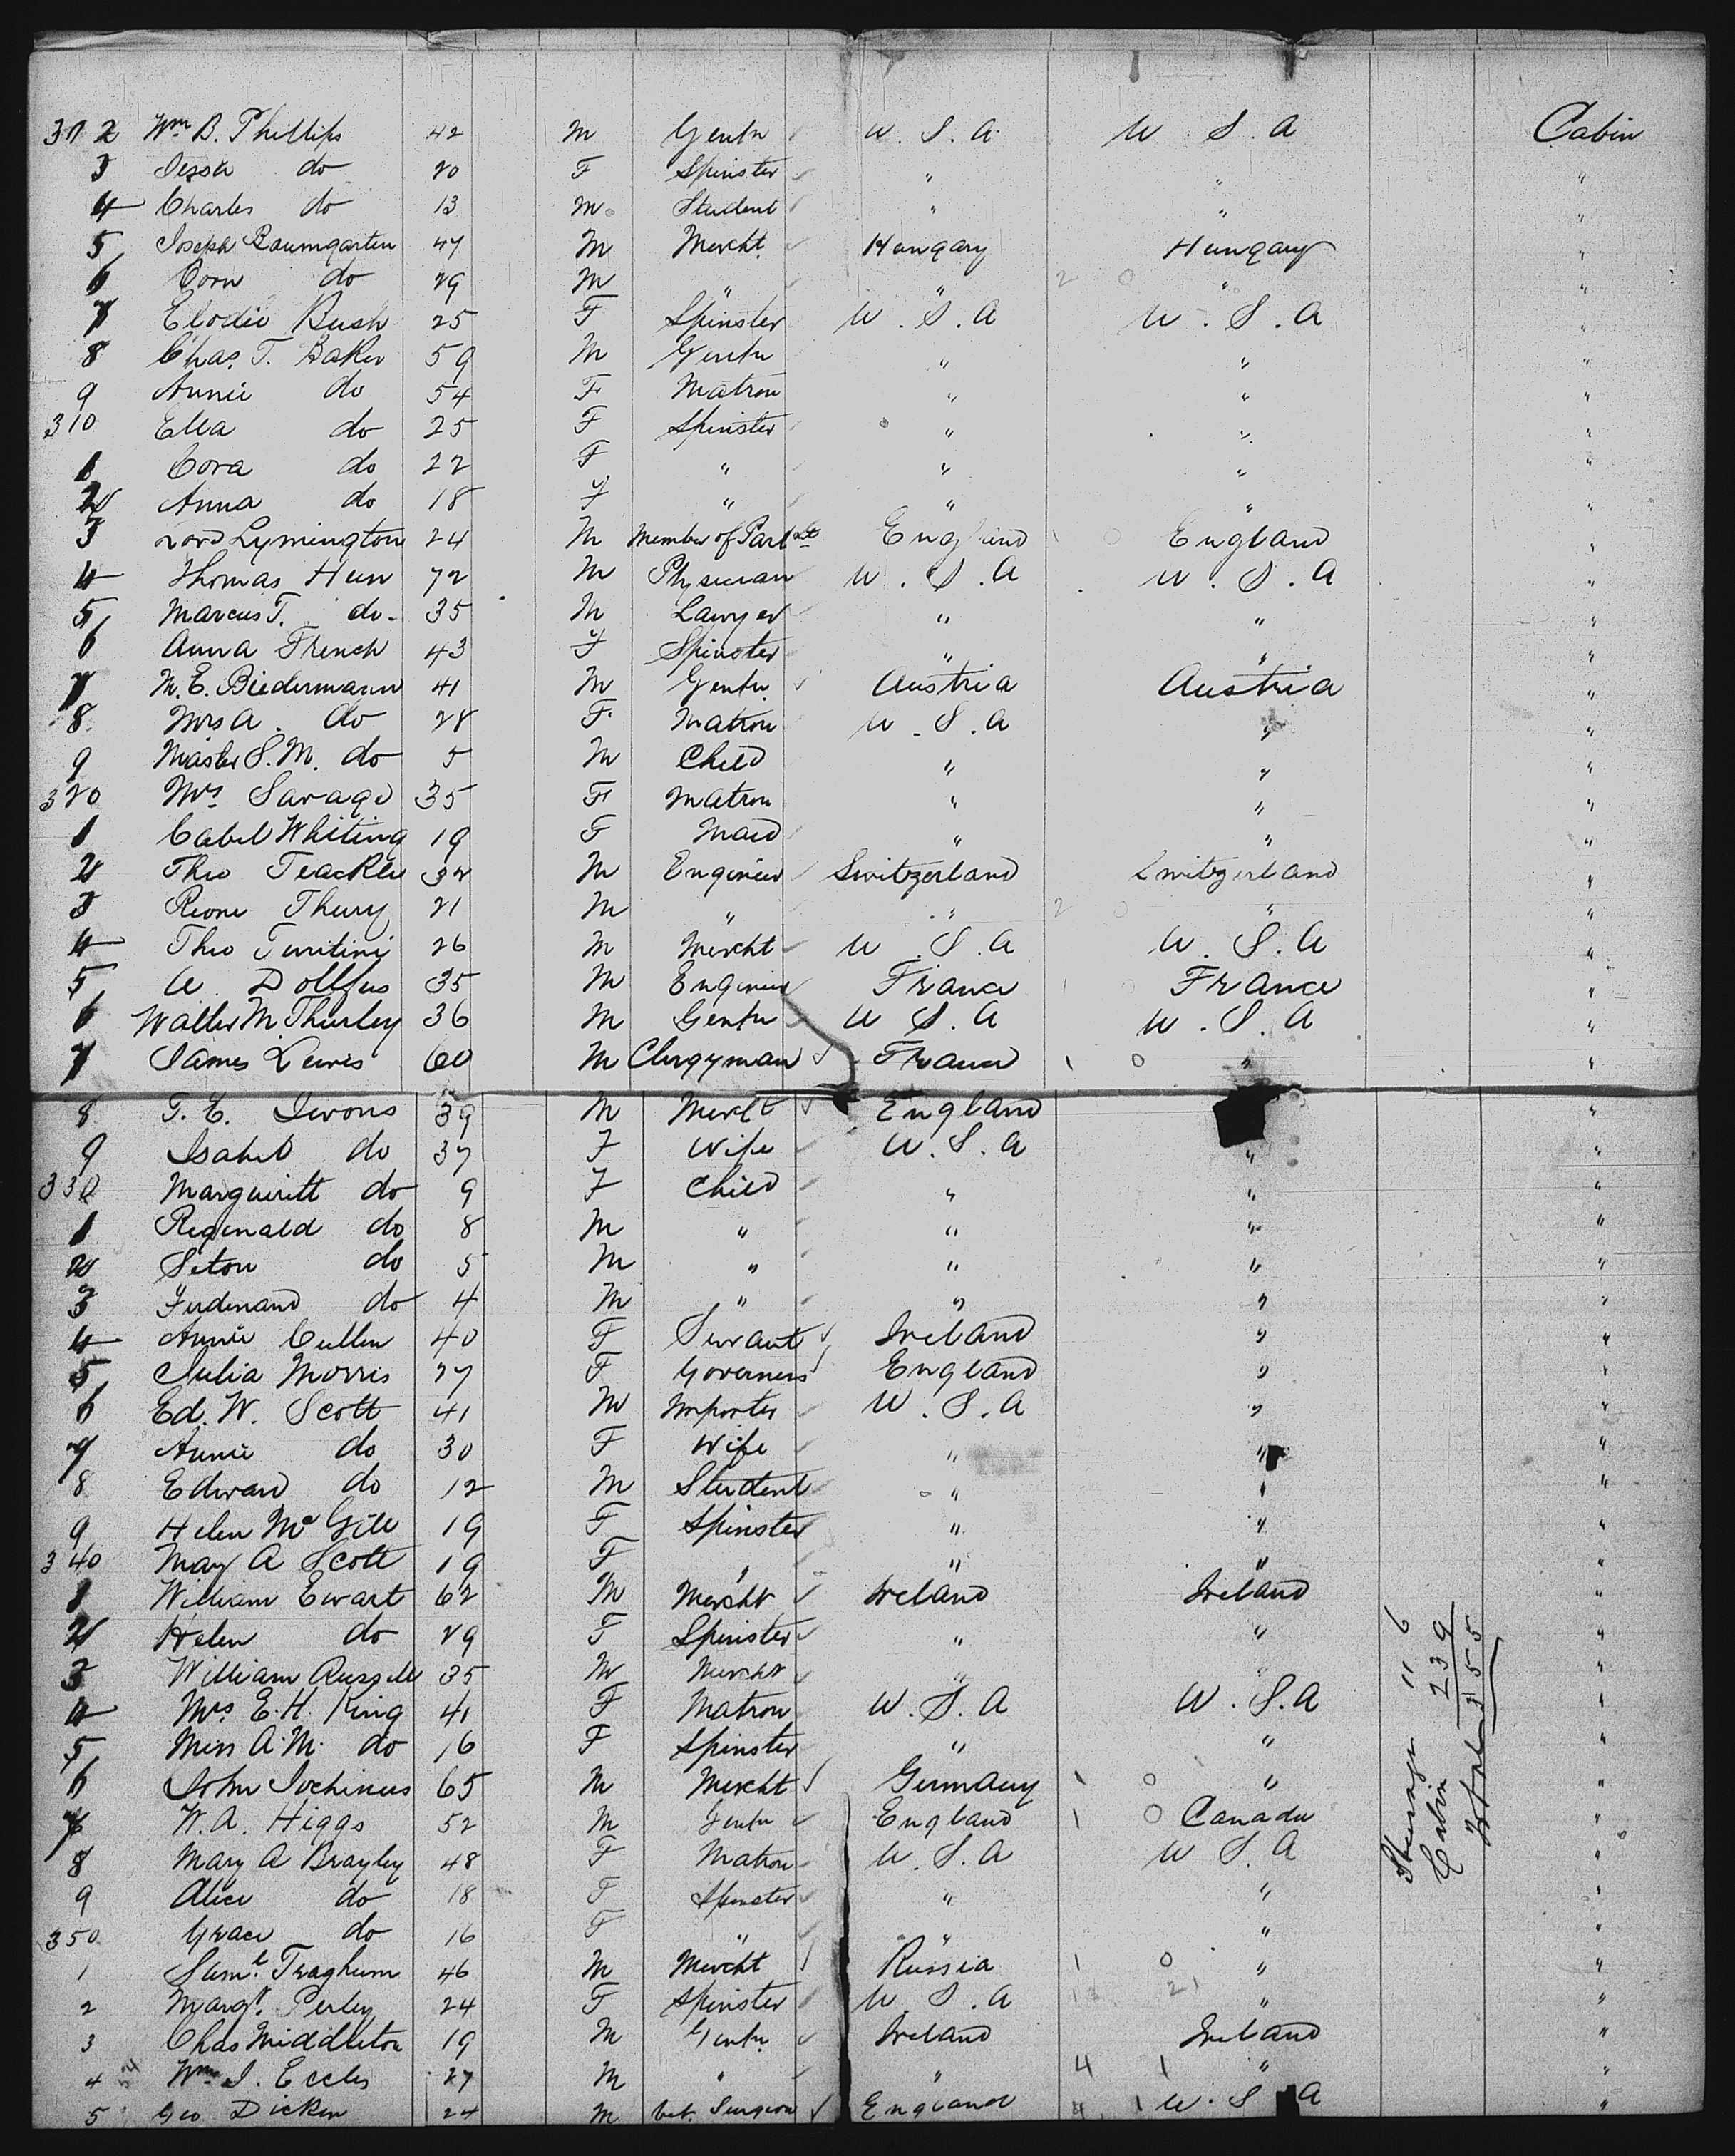 302 Wm B. Phillips 42 M Gentn U.S.A. U.S.A Cabin
3 Jessa do 20 F Spinster " " "
4 Charles do 13 M Student " " "
5 Joseph Baumgarten 47 M Mercht Hungary Hungary "
6 Corn do 29 M " " 2 0 " "
7 Elodie Bush 25 F Spinster U.S.A U.S.A "
8 Chas. T. Baker 59 M Gentn " " "
9 Annie do 54 F Matron " " "
310 Ella do 25 F Spinster " " "
1 Cora do 22 F " " " "
2 Anna do 18 F " " " "
3 Lord Lymington 24 M Member of Parlt England 1 0 England "
4 Thomas Hun 72 M Physician U.S.A U.S.A "
5 Marcus T. do 35 M Lawyer " " "
6 Anna French 43 F Spinster " " "
7 M. E. Biedermann 41 M Gentn Austria Austria "
8 Mrs A. do 28 F Matron U.S.A " "
9 Master S. M. do 5 M Child " " "
320 Mrs Savage 35 F Matron " " "
1 Cabel Whiting 19 F Maid " " "
2 Theo Teackle 32 M Engineer Switzerland Switzerland "
3 Rene Thury 21 M " " 2 0 " "
4 Theo Turitini 26 M Mercht U.S.A U.S.A "
5 A Dollfus 35 M Engineer France 1 0 France "
6 Walter M. Thurley 36 M Gentn U.S.A U.S.A "
7 James Lewis 60 M Clergyman France 1 0 " "
8 T. E. Ivons 39 M Mercht England "
9 Isabel do 37 F Wife U.S.A " "
330 Margueritt do 9 F Child " " "
1 Reginald do 8 M " " " "
2 Seton do 5 M " " " "
3 Ferdinand do 4 M " " " "
4 Annie Cullen 40 F Servant Ireland " "
5 Julia Morris 27 F Governess England " "
6 Ed. W. Scott 41 M Importer U.S.A " "
7 Annie do 30 F Wife " " "
8 Edward do 12 M Student " " "
9 Helen McGill 19 F Spinster " " "
340 May A Scott 19 F " " " "
1 William Ewart 62 M Mercht Ireland Ireland "
2 Helen do 29 F Spinster " " "
3 William Russell 35 M Mercht " " "
4 Mrs E. H. King 41 F Matron U.S.A U.S.A "
5 Miss A. M. do 16 F Spinster " " "
6 John Jochinus 65 M Mercht Germany 1 0 " "
7 W. A. Higgs 52 M Gentn England 1 0 Canada "
8 Mary A Brayley 48 F Matron U.S.A U S A "
9 Alice do 18 F Spinster " " "
350 Grace do 16 F " " " "
1 Saml Traghum 46 M Mercht Russia 1 0 " "
2 Margt. Perley 24 F Spinster U.S.A 13 21 " "
3 Chas Middleton 19 M Gentn Ireland Ireland "
4 Wm J. Eccles 27 M " " 4 1 " "
5 Geo Dicken 24 M Vet. Surgeon England 4 1 U.S.A "
Steerage 116
Cabin 239
Total 355